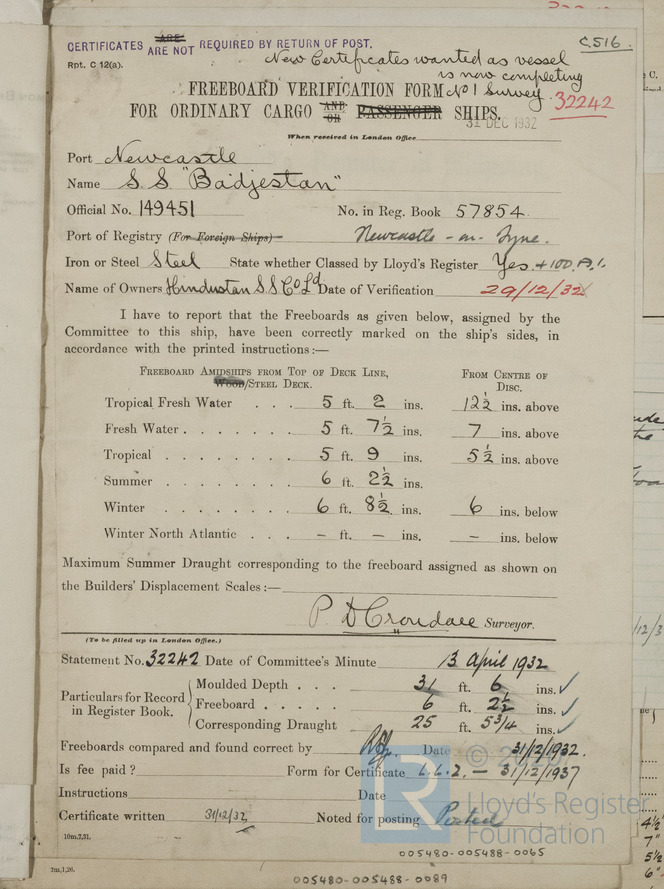 CERTIFICATES ARE ARE NOT REQUIRED BY RETURN OF POST.
C516.
Rpt. C 12(a).
New Certificates wanted as vessel
is now completing
No 1 Survey.
FREEBOARD VERIFICATION FORM
FOR ORDINARY CARGO AND OR PASSENGER SHIPS.
32242
31 DEC 1932
When received in London Office
Port Newcastle
Name S.S. "Badjestan"
Official No. 149451 No. in Reg. Book 57854.
Port of Registry (For Foreign Ships) Newcastle-on-Tyne.
Iron or Steel Steel State whether Classed by Lloyd's Register Yes. +100.A.1.
Name of Owners Hindustan S S Co Ld Date of Verification 29/12/32
I have to report that the Freeboards as given below, assigned by the
Committee to this ship, have been correctly marked on the ship's sides, in
accordance with the printed instructions:—
FREEBOARD AMIDSHIPS FROM TOP OF DECK LINE, FROM CENTRE OF
WOOD/STEEL DECK. DISC.
Tropical Fresh Water . . . 5 ft. 2 ins. 12½ ins. above
Fresh Water . . . . . . . 5 ft. 7½ ins. 7 ins. above
Tropical . . . . . . . . 5 ft. 9 ins. 5½ ins. above
Summer . . . . . . . . 6 ft. 2½ ins.
Winter . . . . . . . . 6 ft. 8½ ins. 6 ins. below
Winter North Atlantic . . . – ft. – ins. – ins. below
Maximum Summer Draught corresponding to the freeboard assigned as shown on
the Builders' Displacement Scales:—
P D Crondace Surveyor.
(To be filled up in London Office.)
Statement No. 32242 Date of Committee's Minute 13 April 1932
Particulars for Record in Register Book.
Moulded Depth . . . 31 ft. 6 ins. ✓
Freeboard . . . . . 6 ft. 2½ ins. ✓
Corresponding Draught 25 ft. 5¾ ins. ✓
Freeboards compared and found correct by Date 31/12/1932.
Is fee paid? Form for Certificate L.L.2. — 31/12/1937
Instructions Date
Certificate written 31/12/32 Noted for posting Posted
10m,7,31.
© 20
Lloyd's Register
Foundation
005480-005488-0065
7m,1,26.
005480-005488-0089
4½"
7"
5½
6"